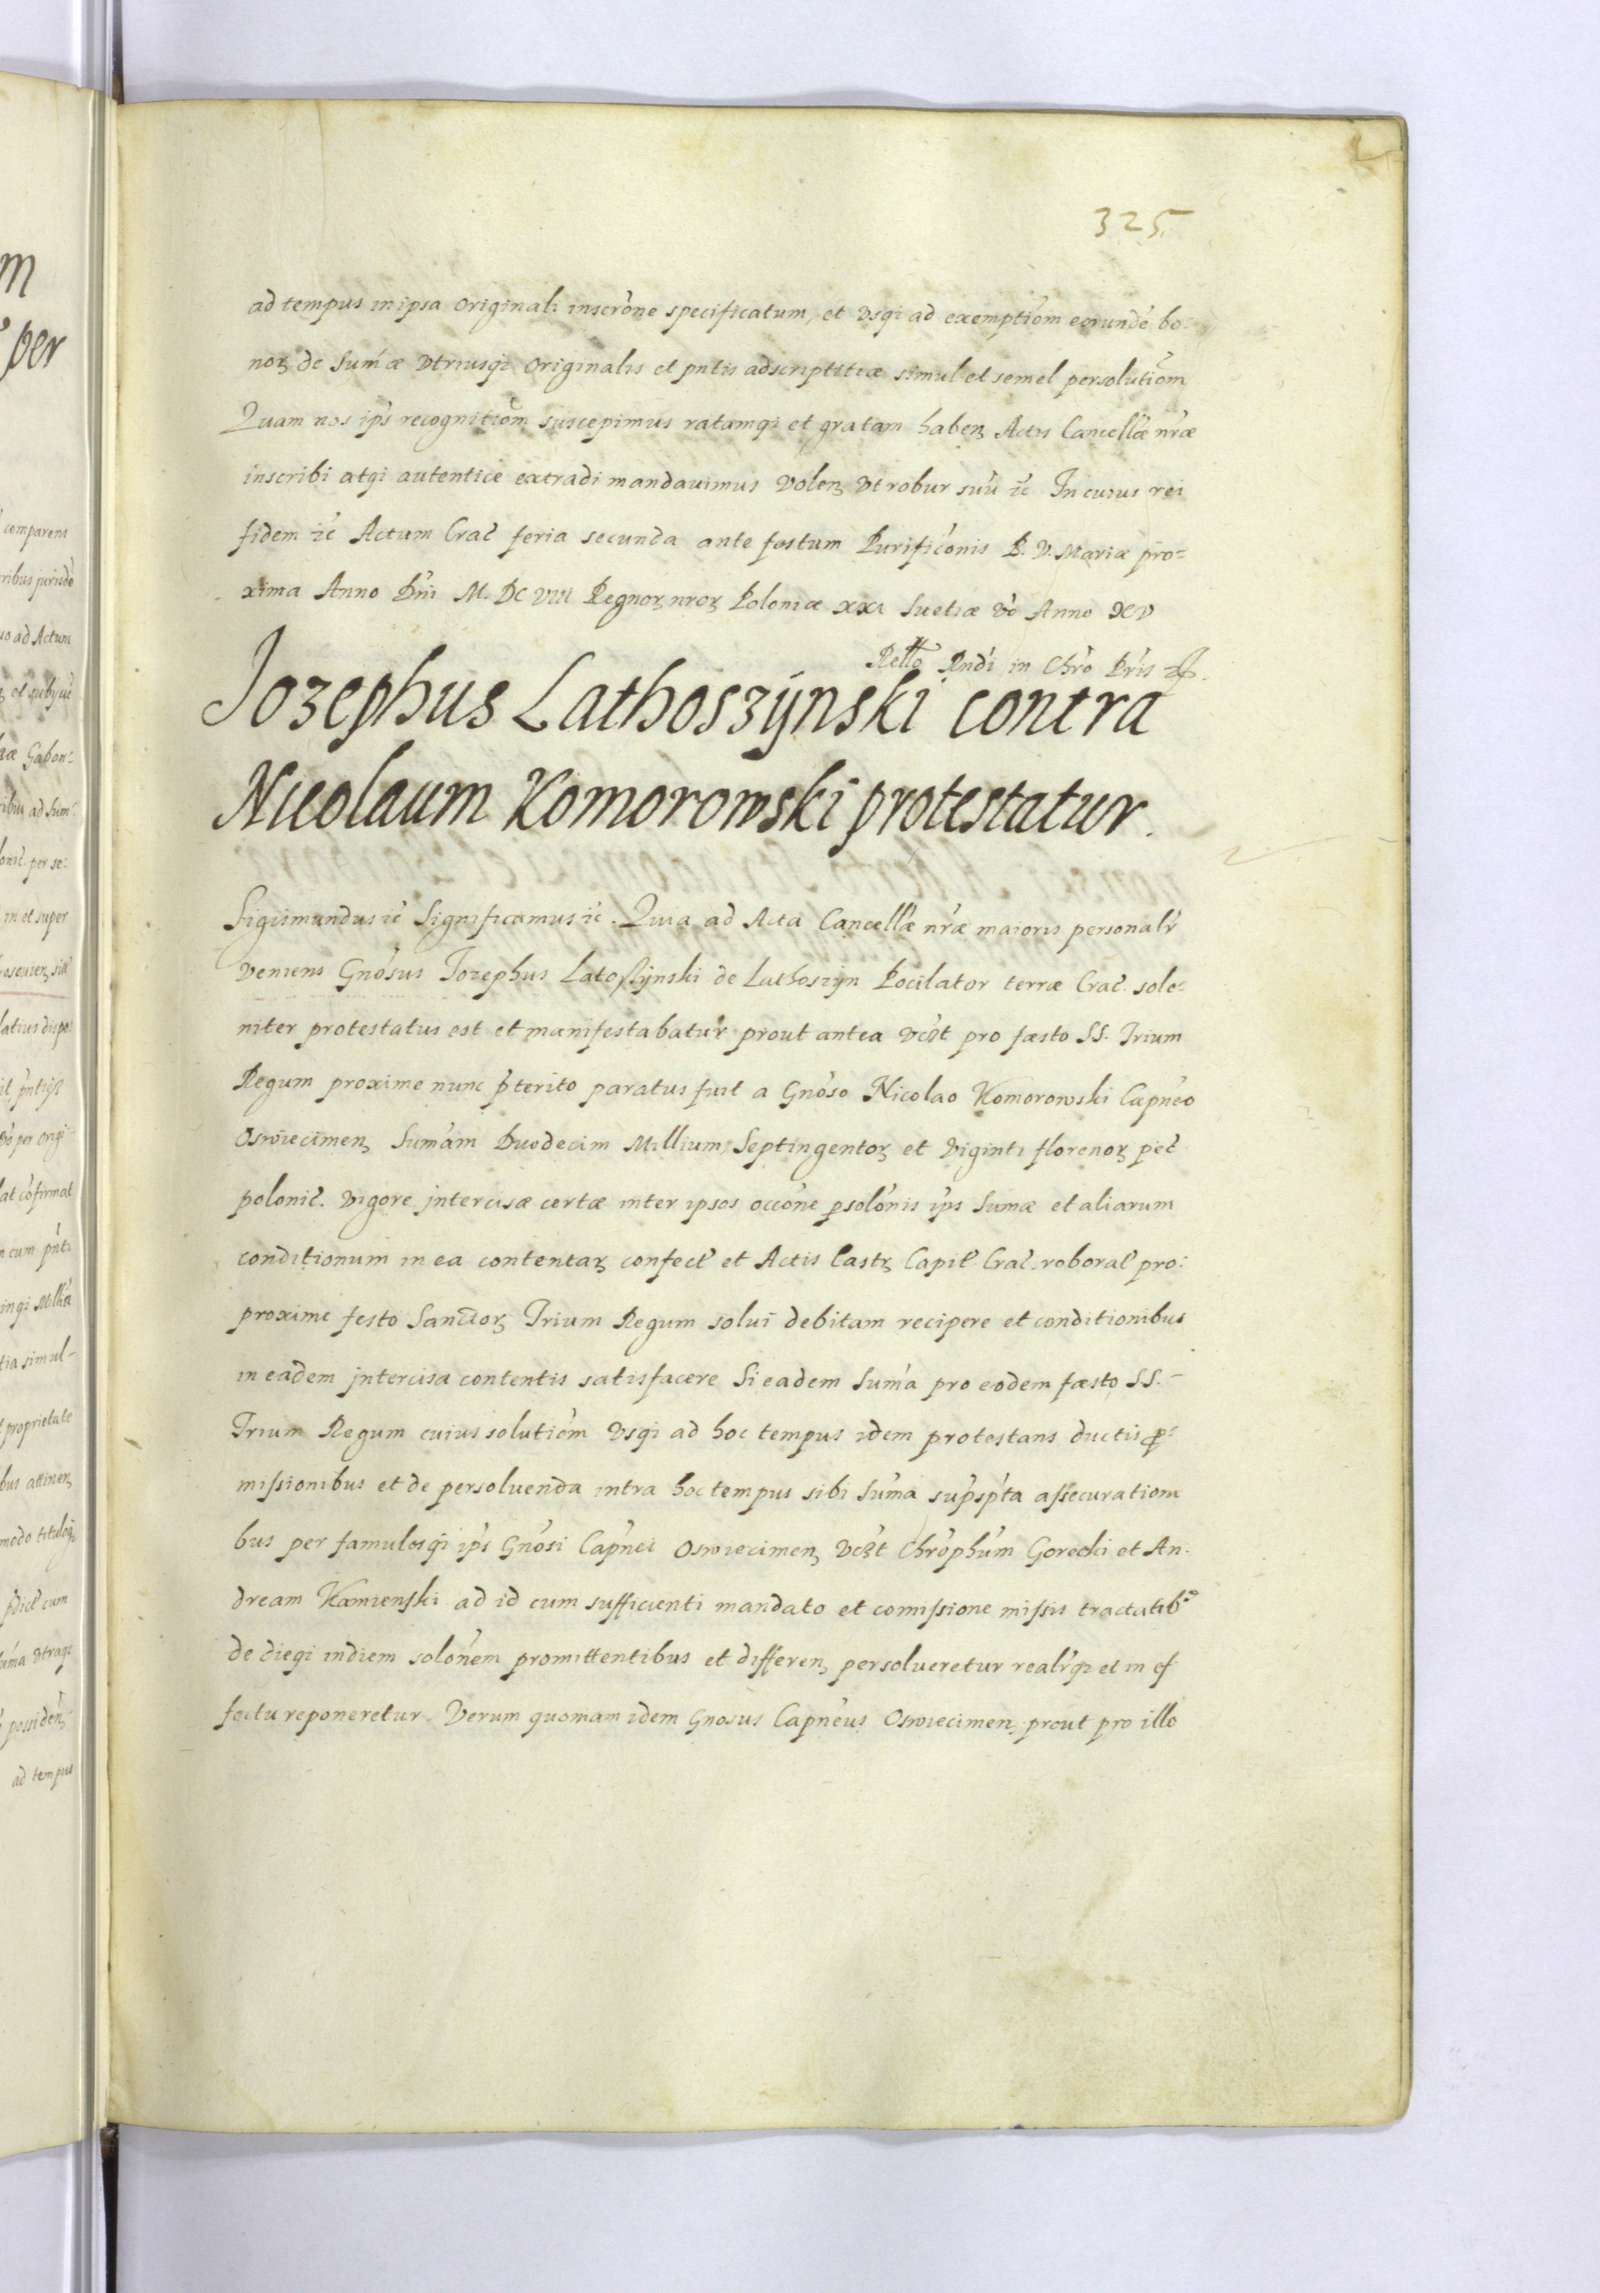 325
ad tempus in ipsa originali inscrõne specificatum, et vsqi ad exemptiom eorundẽ bo-
noꝝ de sum̃æ vtriusqi originalis et pñtis adscriptitiæ simul et semel persolutiom
Quam nos ip̃s recognitiom̃ suscepimus ratamqi et gratam habeñ Actis Cancellæ nr̃æ
inscribi atqi autentice extradi mandauimus volen̄ vt robur suũ ꝛc̃ In cuius rei
fidem ꝛc̃ Actum Crac̃ feria secunda ante festum Purific̃onis B. V. Mariæ pro-
xima Anno Dñi M. DC VIII Regnoꝝ nr̃oꝝ Poloniæ XXI Suetiæ v̊o Anno XV
Rell̃o Rndi in Chr̃o Pr̃is
Jozephus Lathoszÿnski contra
Nicolaum Komorowski protestatur.
Sigismundus ꝛc̃ Significamus ꝛc̃. Quia ad Acta Cancellæ nr̃æ maioris personalr̃
veniens Gnõsus Jozephus Latoßÿnski de Lathoszÿn Pocilator terræ Crac̃. sole-
niter protestatus est et manifestabatur prout antea vczt pro fæsto SS. Trium
Regum proxime nunc p̃terito paratus fuit a Gnõso Nicolao Komorowski Capñeo
Oswiecimen̄ Sum̃am Duodecim Millium, Septingentoꝝ et viginti florenoꝝ pec̃
polonic̃. vigore jntercisæ certæ inter ipsos occõne p̱solõnis ip̃s Sum̃æ et aliarum
conditionum in ea contentaꝝ confect̃ et Actis Castꝝ Capit̃ Crac̃. roborat̃ pro-
proxime festo Sanctoꝝ Trium Regum solui debitam recipere et conditionibus
in eadem jntercisa contentis satisfacere Si eadem Sum̃a pro eodem fæsto SS.-
Trium Regum cuius solutiom̃ vsqi ad hoc tempus idem protestans ductis p̱ro-
missionibus et de persoluenda intra hoc tempus sibi sum̃a sup̃sp̃ta assecuratiom
bus per famulosqi ip̃s Gnõsi Capñei Oswiecimen̄ vczt Chr̃ophũm Gorecki et An-
dream Kamienski ad id cum sufficienti mandato et com̃issione missis tractatib9
de diegi indiem solõnem promittentibus et differen̄ persolueretur realr̃qi et in ef
fectu reponeretur. Verum quoniam idem Gnosus Capñeus Oswiecimen̄ prout pro illo